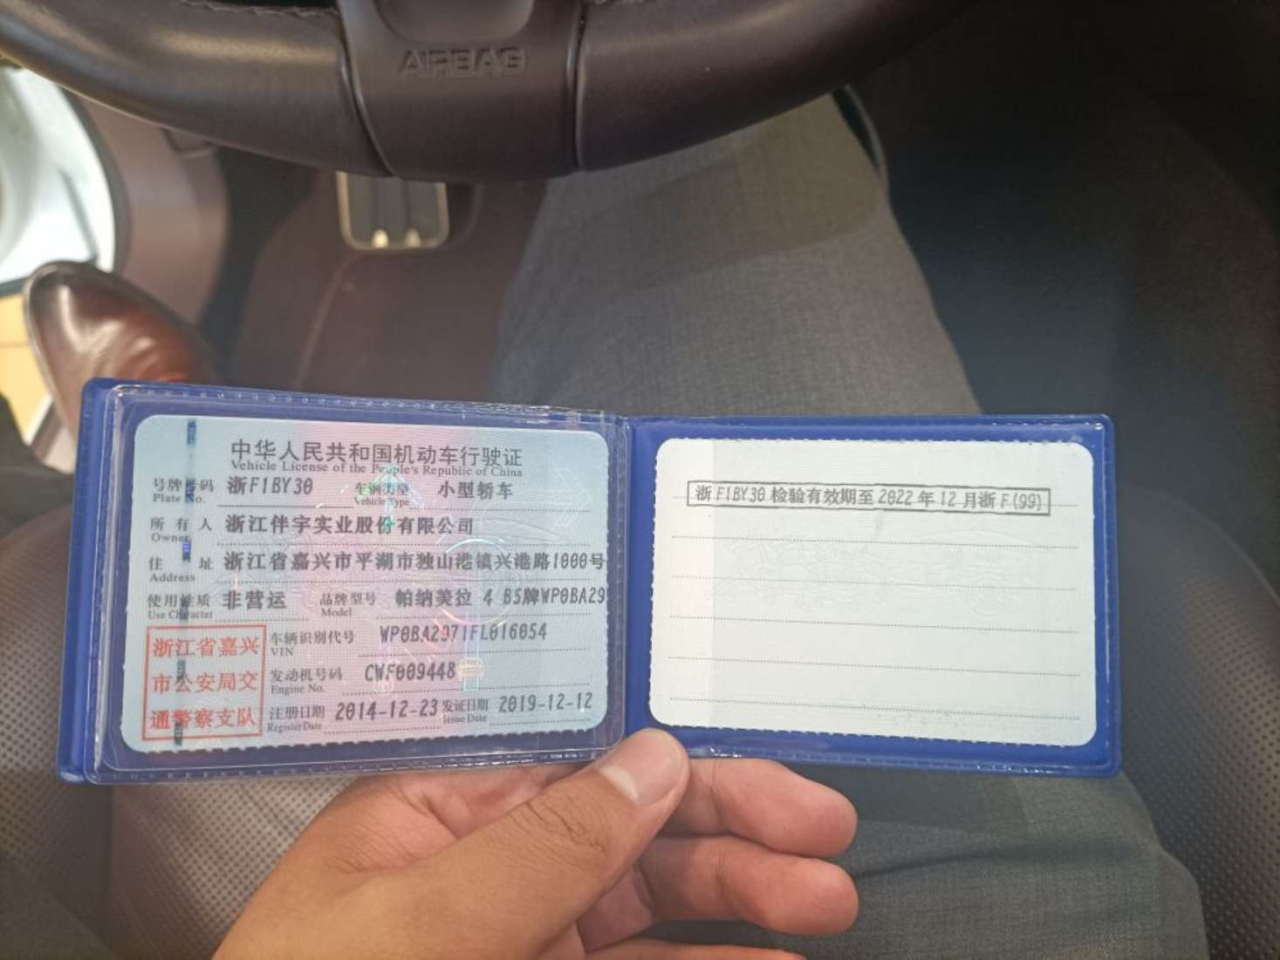 AIRBAG
中华人民共和国机动车行驶证
Vehicle License of the People's Republic of China
号牌号码 浙F1BY30 车辆类型 小型轿车
Plate No. Vehicle Type
所有人 浙江伴宇实业股份有限公司
Owner
住址 浙江省嘉兴市平湖市独山港镇兴港路1000号
Address
使用性质 非营运 品牌型号 帕纳美拉 4 BS牌WP0BA29
Use Character Model
浙江省嘉兴
市公安局交
通警察支队
车辆识别代号 WP0BA2971FL016054
VIN
发动机号码 CWF009448
Engine No.
注册日期 2014-12-23 发证日期 2019-12-12
Register Date Issue Date
浙F1BY30检验有效期至2022年12月浙F(99)